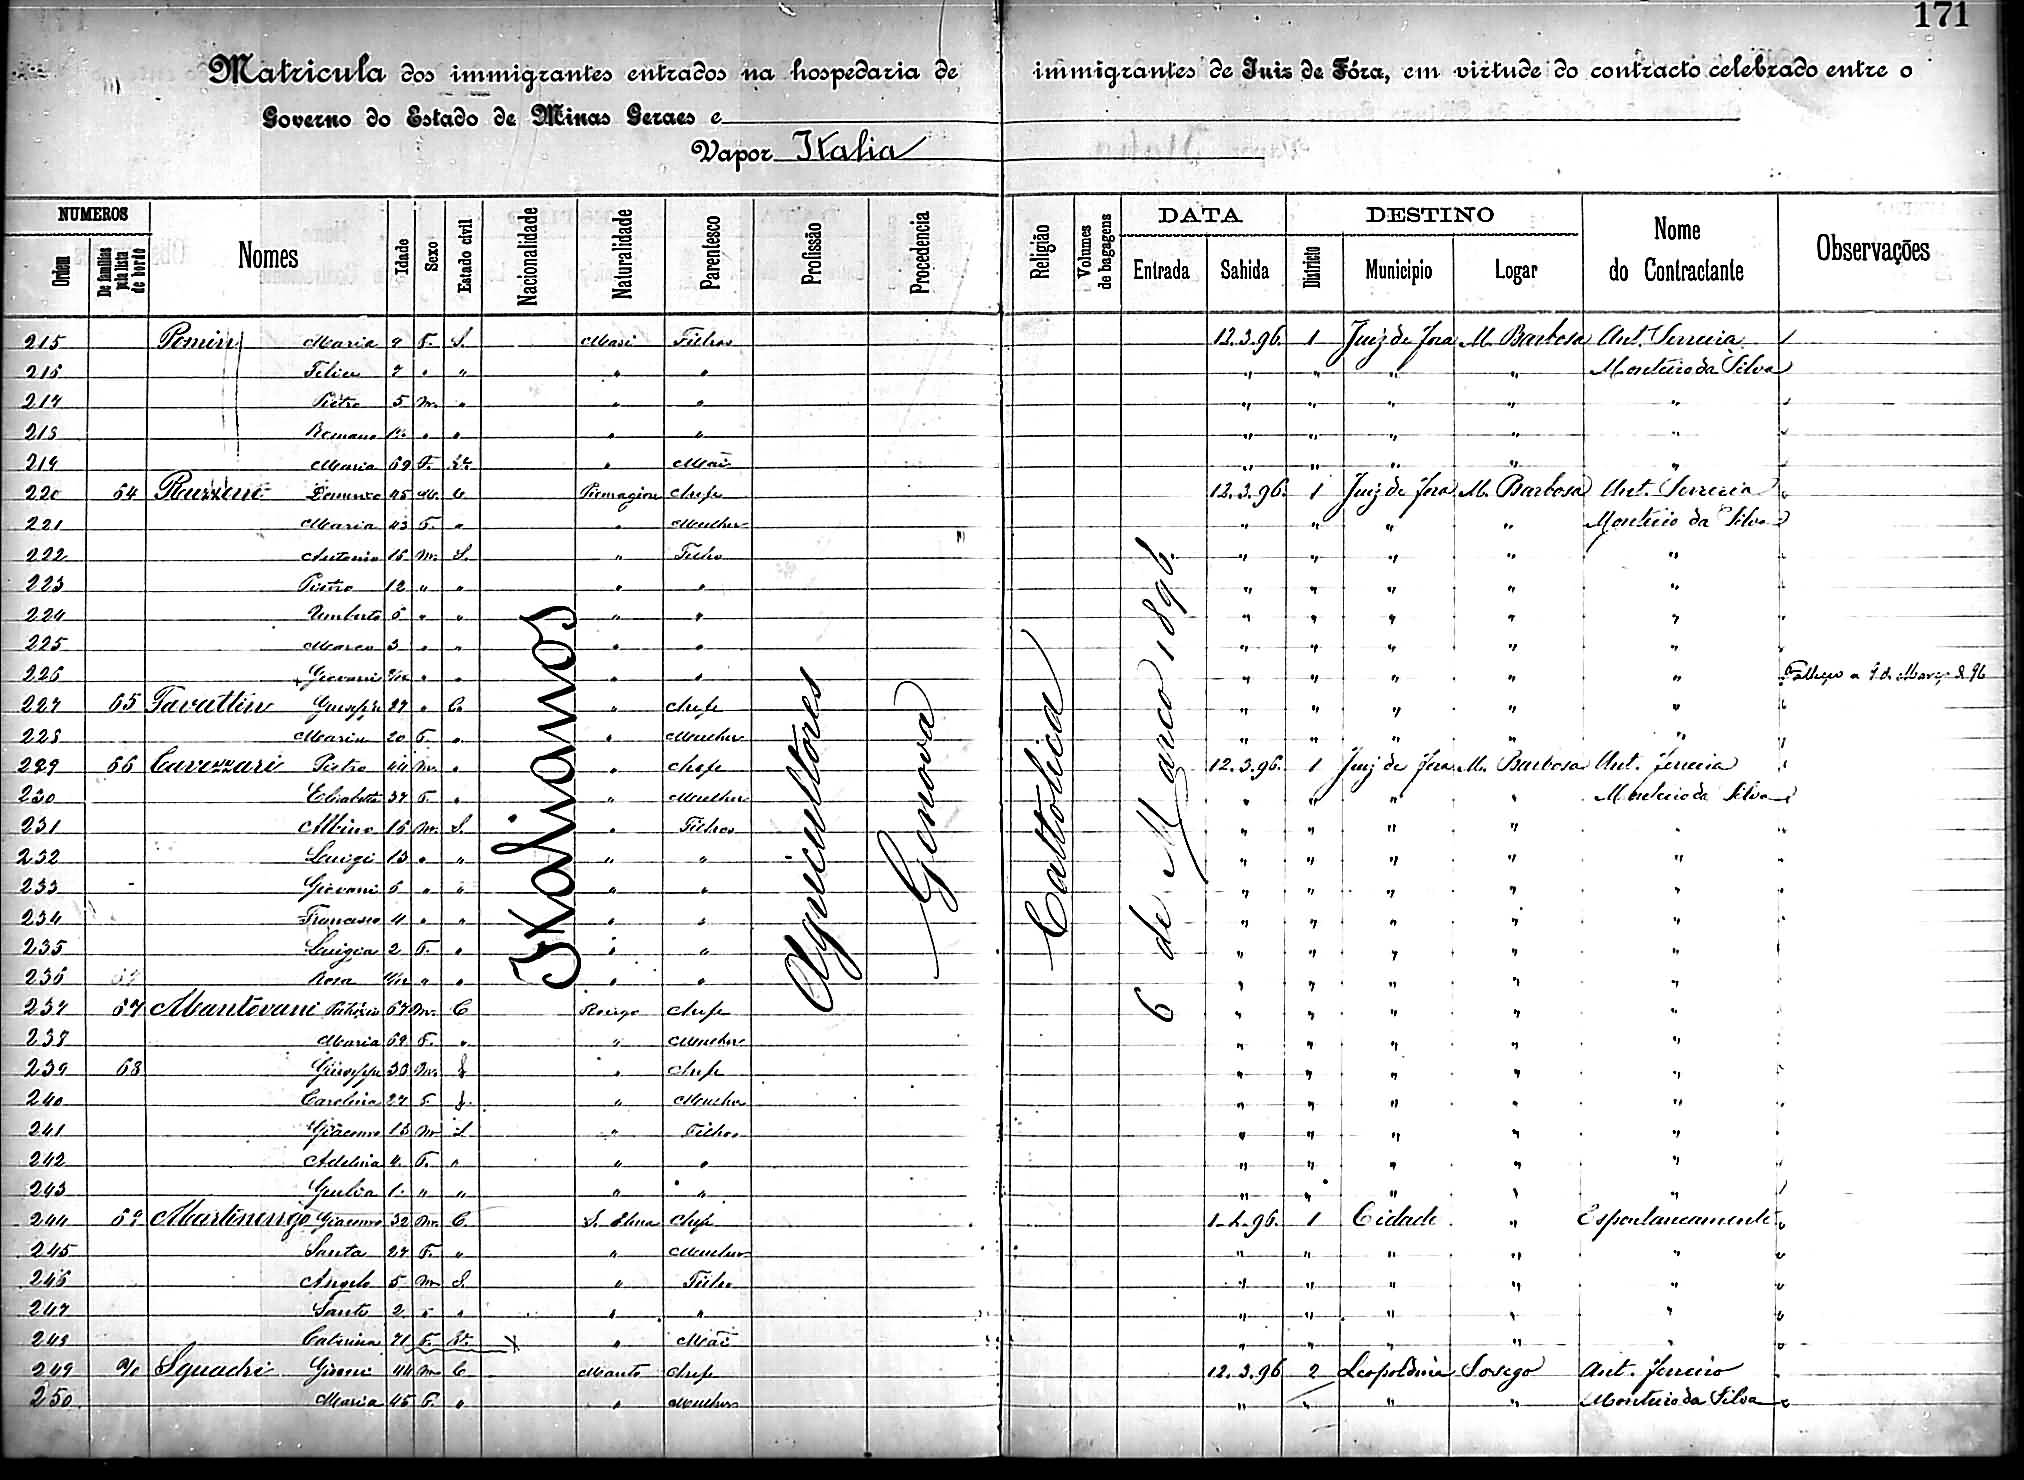 171
Matricula dos immigrantes entrados na hospedaria de immigrantes de Juiz de Fóra, em virtude do contracto celebrado entre o
Governo do Estado de Minas Geraes e
Vapor Italia
NUMEROS Nomes Idade Sexo Estado civil Nacionalidade Naturalidade Parentesco Profissão Procedencia Religião Volumes de bagagens DATA DESTINO Nome do Contractante Observações
Ordem De familias pela lista de bordo Entrada Sahida Districto Municipio Logar
Italianos
Agricultores
Genova
Cattolica
6 de Março 1896.
215 Maria F. S. Filhos 12.3.96. 1 Juiz de Fora M. Barbosa Ant. Ferreira
216 7 " " " " " " " " Monteiro da Silva
217 Pietro 5 M. " " " " " " " "
218 Romano " " " " " " " " "
219 Maria 69 F. Mãi " " " " "
220 64 45 M. C Chefe 12.3.96. 1 Juiz de Fora M. Barbosa Ant. Ferreira
221 Maria 43 F. " " Mulher " " " " Monteiro da Silva
222 Antonio 16 M. S. " Filho " " " " "
223 Pietro 12 " " " " " " " " "
224 Umberto 6 " " " " " " " " "
225 Marco 3 " " " " " " " " "
226 Giovanni " " " " " " " " " Falleceu a de Março de 96
227 65 Giuseppe 27 " C. " Chefe " " " " "
228 Maria 20 F. " " Mulher " " " " "
229 66 Cavezzari Pietro 44 M. " " Chefe 12.3.96. 1 Juiz de Fora M. Barbosa Ant. Ferreira
230 Elisabetta 37 F. " " Mulher " " " " Monteiro da Silva
231 Albino 16 M. S. " Filhos " " " " "
232 Luigi 13 " " " " " " " " "
233 Giovanni 6 " " " " " " " " "
234 Francesco 4 " " " " " " " " "
235 Luigia 2 F. " " " " " " " "
236 Rosa " " " " " " " " "
237 67 Mantovani 67 M. C Rovigo Chefe " " " " "
238 Maria 62 F. " " Mulher " " " " "
239 68 Giuseppe 30 M. " Chefe " " " " "
240 Carolina 27 F " Mulher " " " " "
241 Giacomo 13 M S " Filhos " " " " "
242 Adelina 4. F. " " " " " " " "
243 Giulia 1. " " " " " " " " "
244 69 Martinengo Giacomo 32 M. C. Chefe 96. 1 Cidade " Espontaneamente
245 Santa 27 F. " " Mulher " " " " "
246 Angelo 5 M S. " Filho " " " " "
247 Santo 2 " " " " " " " " "
248 Caterina 71 F. " Mãi " " " " "
249 70 44 M C Manto Chefe 12.3.96 2 Leopoldina Sosego Ant. Ferreira
250 Maria 45 F. " " Mulher " " " " Monteiro da Silva